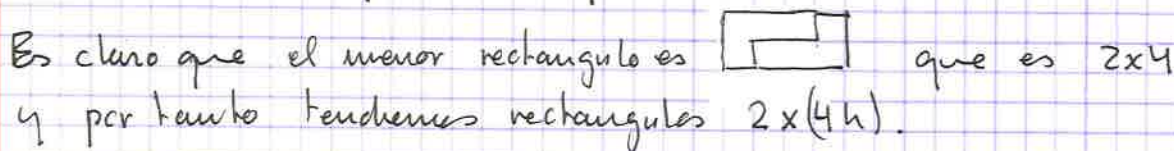 Es claro que el menor rectangulo es que es 2x4
y por tanto tendremos rectangulos 2x(4n).